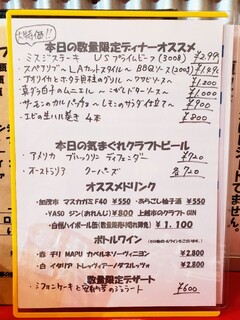 大特価!!
本日の数量限定ディナーオススメ
・ミスジステーキ USプライムビーフ(300g) ¥2,99
・スペアリブ〜LAカットスタイル〜BBQソース(200g) ¥1,490
・アオリイカとホタテ貝柱のグリル〜ワサビソース〜 ¥1,200
・真ダラのムニエル〜 ¥1,000
・サーモンのカルパッチョ〜レモンのサラダ仕立て〜 ¥900
・エビの生ハム巻き 4本 ¥800
本日の気まぐれクラフトビール
・アメリカ ブルックリン ディフェンダー ¥720
・オーストラリア クーパーズ 各720
オススメドリンク
・加茂市 マスカガミF40 ¥550 ・あらごし柚子酒 ¥550
・YASO ジン(あれんじ) ¥800 上越市のクラフトGIN
・白州ハイボール缶(数量限定売り切れ御免) ¥1,100
ボトルワイン
・赤 チリ MAPU カベルネソーヴィニヨン ¥2,800
・白 イタリア トレッヴィアーノダブルッツォ ¥2,800
数量限定デザート
・シフォンケーキと のジェラート ¥600